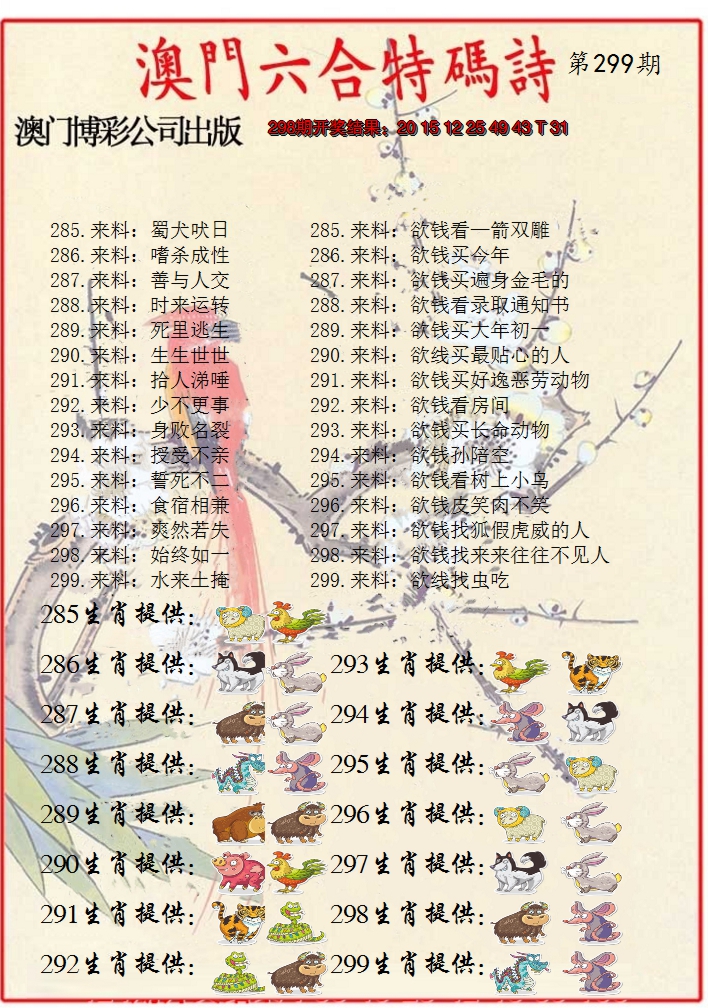 澳門六合特碼詩 第299期
澳门博彩公司出版 298期开奖结果：20 15 12 25 49 43 T 31
285.来料：蜀犬吠日 285.来料：欲钱看一箭双雕
286.来料：嗜杀成性 286.来料：欲钱买今年
287.来料：善与人交 287.来料：欲钱买遍身金毛的
288.来料：时来运转 288.来料：欲钱看录取通知书
289.来料：死里逃生 289.来料：欲钱买大年初一
290.来料：生生世世 290.来料：欲线买最贴心的人
291.来料：拾人涕唾 291.来料：欲钱买好逸恶劳动物
292.来料：少不更事 292.来料：欲钱看房间
293.来料：身败名裂 293.来料：欲钱买长命动物
294.来料：授受不亲 294.来料：欲钱孙陪空
295.来料：誓死不二 295.来料：欲钱看树上小鸟
296.来料：食宿相兼 296.来料：欲钱皮笑肉不笑
297.来料：爽然若失 297.来料：欲钱找狐假虎威的人
298.来料：始终如一 298.来料：欲钱找来来往往不见人
299.来料：水来土掩 299.来料：欲线找虫吃
285生肖提供：
286生肖提供： 293生肖提供：
287生肖提供： 294生肖提供：
288生肖提供： 295生肖提供：
289生肖提供： 296生肖提供：
290生肖提供： 297生肖提供：
291生肖提供： 298生肖提供：
292生肖提供： 299生肖提供：